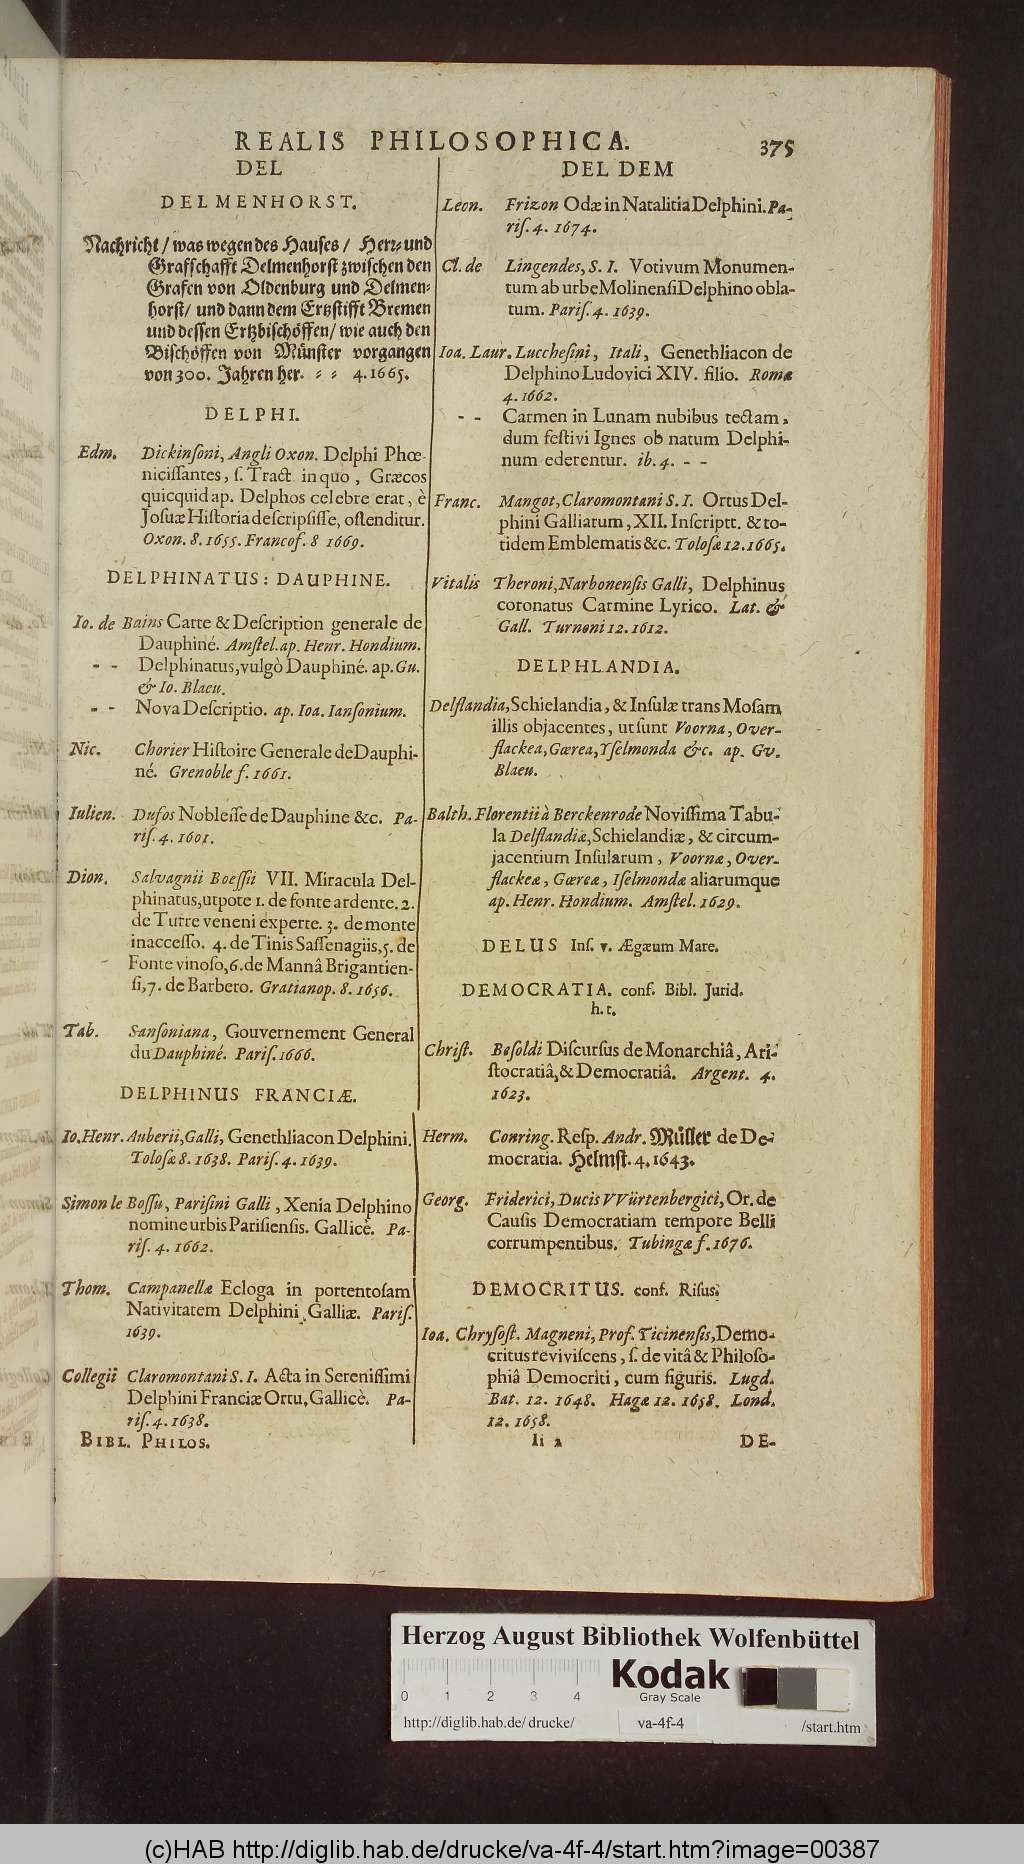 REALIS PHILOSOPHICA. 375
DEL
DELMENHORST.
Nachricht / was wegen des Hauses / Herr- und
Grafschafft Delmenhorst zwischen den
Grafen von Oldenburg und Delmen-
horst / und dann dem Ertzstifft Bremen
und dessen Ertzbischöffen / wie auch den
Bischöffen von Münster vorgangen
von 300. Jahren her. - - 4. 1665.
DELPHI.
Edm. Dickinſoni, Angli Oxon. Delphi Phœ-
niciſſantes, ſ. Tract. in quo, Græcos
quicquid ap. Delphos celebre erat, è
Joſuæ Hiſtoria deſcripſiſſe, oſtenditur.
Oxon. 8. 1655. Francof. 8 1669.
DELPHINATUS: DAUPHINE.
Io. de Bains Carte & Deſcription generale de
Dauphiné. Amſtel. ap. Henr. Hondium.
- - Delphinatus, vulgò Dauphiné. ap. Gu.
& Io. Blaeu.
- - Nova Deſcriptio. ap. Ioa. Ianſonium.
Nic. Chorier Hiſtoire Generale de Dauphi-
né. Grenoble f. 1661.
Iulien. Dufos Nobleſſe de Dauphine &c. Pa-
riſ. 4. 1601.
Dion. Salvagnii Boeſſii VII. Miracula Del-
phinatus, utpote 1. de fonte ardente. 2.
de Turre veneni experte. 3. de monte
inacceſſo. 4. de Tinis Saſſenagiis, 5. de
Fonte vinoſo, 6. de Mannâ Brigantien-
ſi, 7. de Barbero. Gratianop. 8. 1656.
Tab. Sanſoniana, Gouvernement General
du Dauphiné. Pariſ. 1666.
DELPHINUS FRANCIÆ.
Io. Henr. Auberii, Galli, Genethliacon Delphini.
Toloſæ 8. 1638. Pariſ. 4. 1639.
Simon le Boſſu, Pariſini Galli, Xenia Delphino
nomine urbis Pariſienſis. Gallicè. Pa-
riſ. 4. 1662.
Thom. Campanellæ Ecloga in portentoſam
Nativitatem Delphini Galliæ. Pariſ.
1639.
Collegii Claromontani S. I. Acta in Sereniſſimi
Delphini Franciæ Ortu, Gallicè. Pa-
riſ. 4. 1638.
BIBL. PHILOS.
DEL DEM
Leon. Frizon Odæ in Natalitia Delphini. Pa-
riſ. 4. 1674.
Cl. de Lingendes, S. I. Votivum Monumen-
tum ab urbe Molinenſi Delphino obla-
tum. Pariſ. 4. 1639.
Ioa. Laur. Luccheſini, Itali, Genethliacon de
Delphino Ludovici XIV. filio. Romæ
4. 1662.
- - Carmen in Lunam nubibus tectam,
dum feſtivi Ignes ob natum Delphi-
num ederentur. ib. 4. - -
Franc. Mangot, Claromontani S. I. Ortus Del-
phini Galliarum, XII. Inſcriptt. & to-
tidem Emblematis &c. Toloſæ 12. 1665.
Vitalis Theroni, Narbonenſis Galli, Delphinus
coronatus Carmine Lyrico. Lat. &
Gall. Turnoni 12. 1612.
DELPHLANDIA.
Delflandia, Schielandia, & Inſulæ trans Moſam
illis objacentes, ut ſunt Voorna, Over-
flackea, Gœrea, Yſelmonda &c. ap. Gv.
Blaeu.
Balth. Florentii à Berckenrode Noviſſima Tabu-
la Delflandiæ, Schielandiæ, & circum-
jacentium Inſularum, Voornæ, Over-
flackeæ, Gœreæ, Iſelmondæ aliarumque
ap. Henr. Hondium. Amſtel. 1629.
DELUS Inſ. v. Ægæum Mare.
DEMOCRATIA. conf. Bibl. Jurid.
h. t.
Chriſt. Beſoldi Diſcurſus de Monarchiâ, Ari-
ſtocratiâ, & Democratiâ. Argent. 4.
1623.
Herm. Conring. Reſp. Andr. Müller de De-
mocratia. Helmſt. 4. 1643.
Georg. Friderici, Ducis VVürtenbergici, Or. de
Cauſis Democratiam tempore Belli
corrumpentibus. Tubingæ f. 1676.
DEMOCRITUS. conf. Riſus.
Ioa. Chryſoſt. Magneni, Prof. Ticinenſis, Demo-
critus reviviſcens, ſ. de vitâ & Philoſo-
phiâ Democriti, cum figuris. Lugd.
Bat. 12. 1648. Hagæ 12. 1658. Lond.
12. 1658.
Ii 2 DE-
Herzog August Bibliothek Wolfenbüttel
Kodak
Gray Scale
0 1 2 3 4
http://diglib.hab.de/drucke/ va-4f-4 /start.htm
(c)HAB http://diglib.hab.de/drucke/va-4f-4/start.htm?image=00387